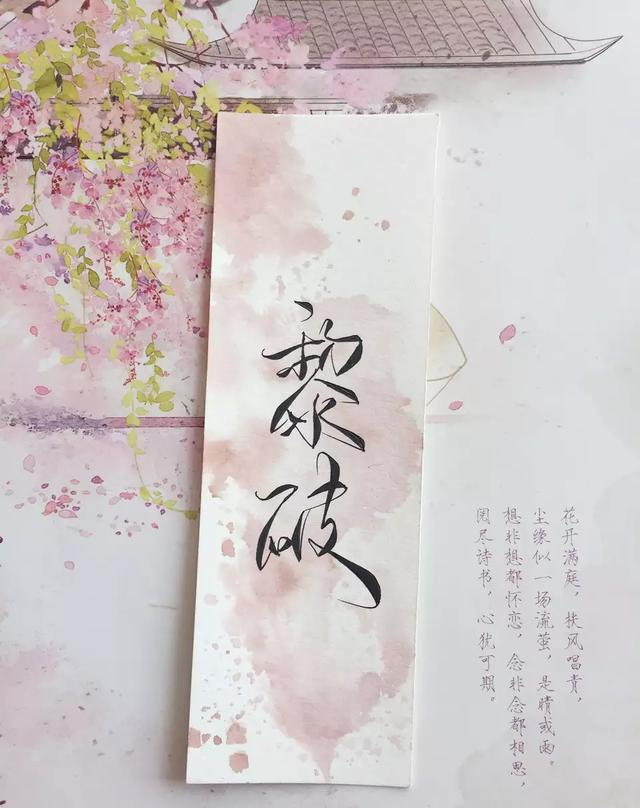 黎破
花开满庭，扶风唱贵，
尘缘似一场流萤，是晴或雨。
想非想都怀恋，念非念都相思，
阅尽诗书，心犹可期。